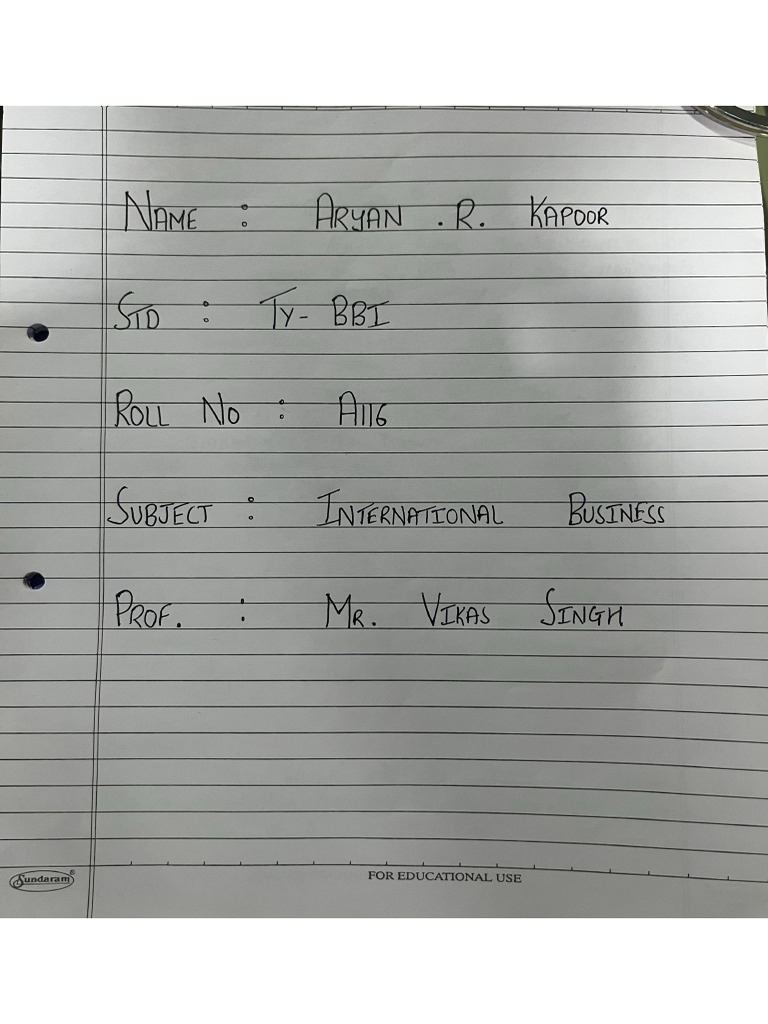 NAME : ARYAN .R. KAPOOR
STD : TY- BBI
ROLL NO : A116
SUBJECT : INTERNATIONAL BUSINESS
PROF. : MR. VIKAS SINGH
Sundaram® FOR EDUCATIONAL USE